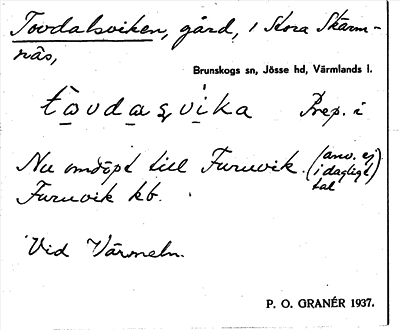 Tovdalsviken, gård, i Stora Skärm-
näs,
Brunskogs sn, Jösse hd, Värmlands l.
tovdasvika Prep. i
Nu omdöpt till Furuvik. (anv. ej
i dagligt
tal)
Furuvik kb.
Vid Värmeln.
P. O. GRANÉR 1937.